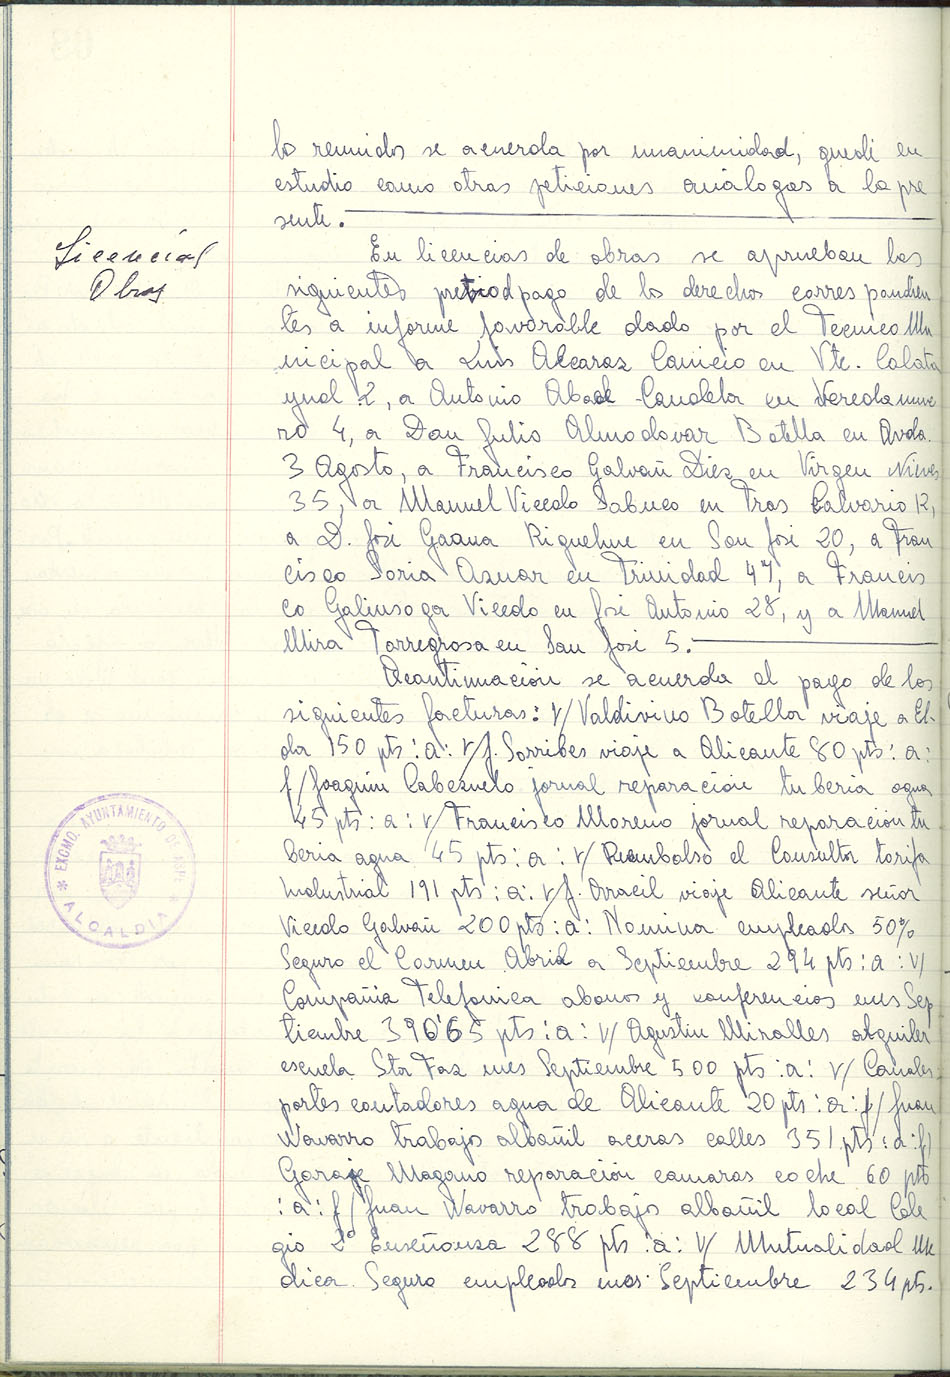 lo reunidos se acuerda por unanimidad, quede en
estudio como otras peticiones análogas a la pre
sente.
Licencias
Obras
En licencias de obras se aprueban las
siguientes previo pago de los derechos correspondien
tes a informe favorable dado por el Tecnico Mu
nicipal a Luis Alcaraz Carricio en Vte. Calata
yud 2, a Antonio Abad Candela en Vereda nume
ro 4, a Don Julio Almodovar Botella en Avda.
3 Agosto, a Francisco Galvañ Diez en Virgen Nieves
35, a Manuel Vicedo Sabuco en Tras Calvario 12,
a D. José Gaana Riquelme en San José 20, a Fran
cisco Soria Aznar en Trinidad 47, a Francis
co Galinsoga Vicedo en José Antonio 28, y a Manuel
Mira Torregrosa en San José 5.
Acontinuación se acuerda el pago de los
siguientes facturas: v/ Valdivino Botella viaje a El-
da 150 pts :a: v/ J. Sorribes viaje a Alicante 80 pts :a:
f/ Joaquin Cabezuelo jornal reparación tuberia agua
45 pts :a: v/ Francisco Moreno jornal reparación tu
beria agua 45 pts :a: v/ Reembolso el Consultor tarifa
Industrial 191 pts :a: v/ J. Arracil viaje Alicante señor
Vicedo Galvañ 200 pts :a: Nomina empleados 50%
Seguro el Carmen Abril a Septiembre 294 pts :a: v/
Compañia Telefonica abonos y conferencias mes Sep
tiembre 390'65 pts :a: v/ Agustin Miralles alquiler
escuela Sta Faz mes Septiembre 500 pts :a: v/ Canales
portes contadores agua de Alicante 20 pts :a: f/ Juan
Navarro trabajo albañil aceras calles 351 pts :a: f/
Garaje Magano reparación camaras coche 60 pts
:a: f/ Juan Navarro trabajo albañil local Cole
gio 2ª Enseñanza 288 pts :a: v/ Mutualidad Me
dica Seguro empleados mes Septiembre 234 pts.
EXCMO. AYUNTAMIENTO DE ASPE
* ALCALDIA *